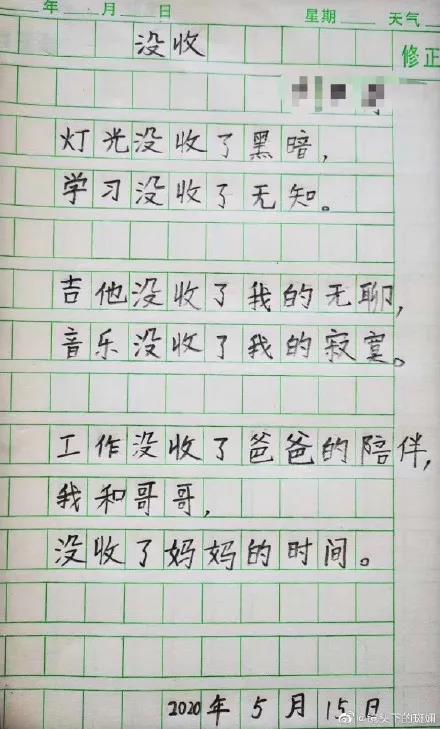 年 月 日 星期 天气
没收
修正
灯光没收了黑暗，
学习没收了无知。
吉他没收了我的无聊，
音乐没收了我的寂寞。
工作没收了爸爸的陪伴，
我和哥哥，
没收了妈妈的时间。
2020年5月15日
@镜头下的斑斓